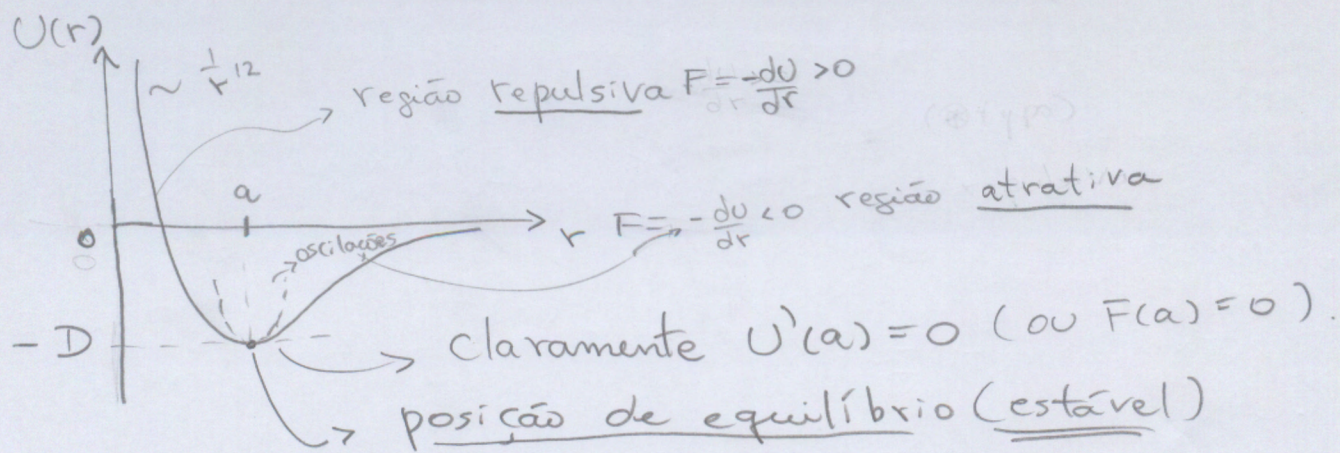 U(r)
~ 1/r^12
região repulsiva F = -dU/dr > 0
a
0
r
F = -dU/dr < 0 região atrativa
oscilações
- D
claramente U'(a) = 0 (ou F(a) = 0).
posição de equilíbrio (estável)